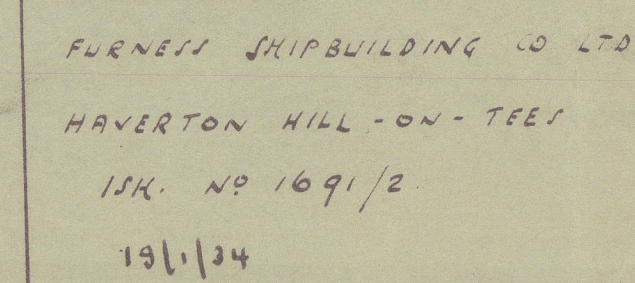 FURNESS SHIPBUILDING CO LTD
HAVERTON HILL-ON-TEES
ISH. Nº 1691/2.
19/1/34